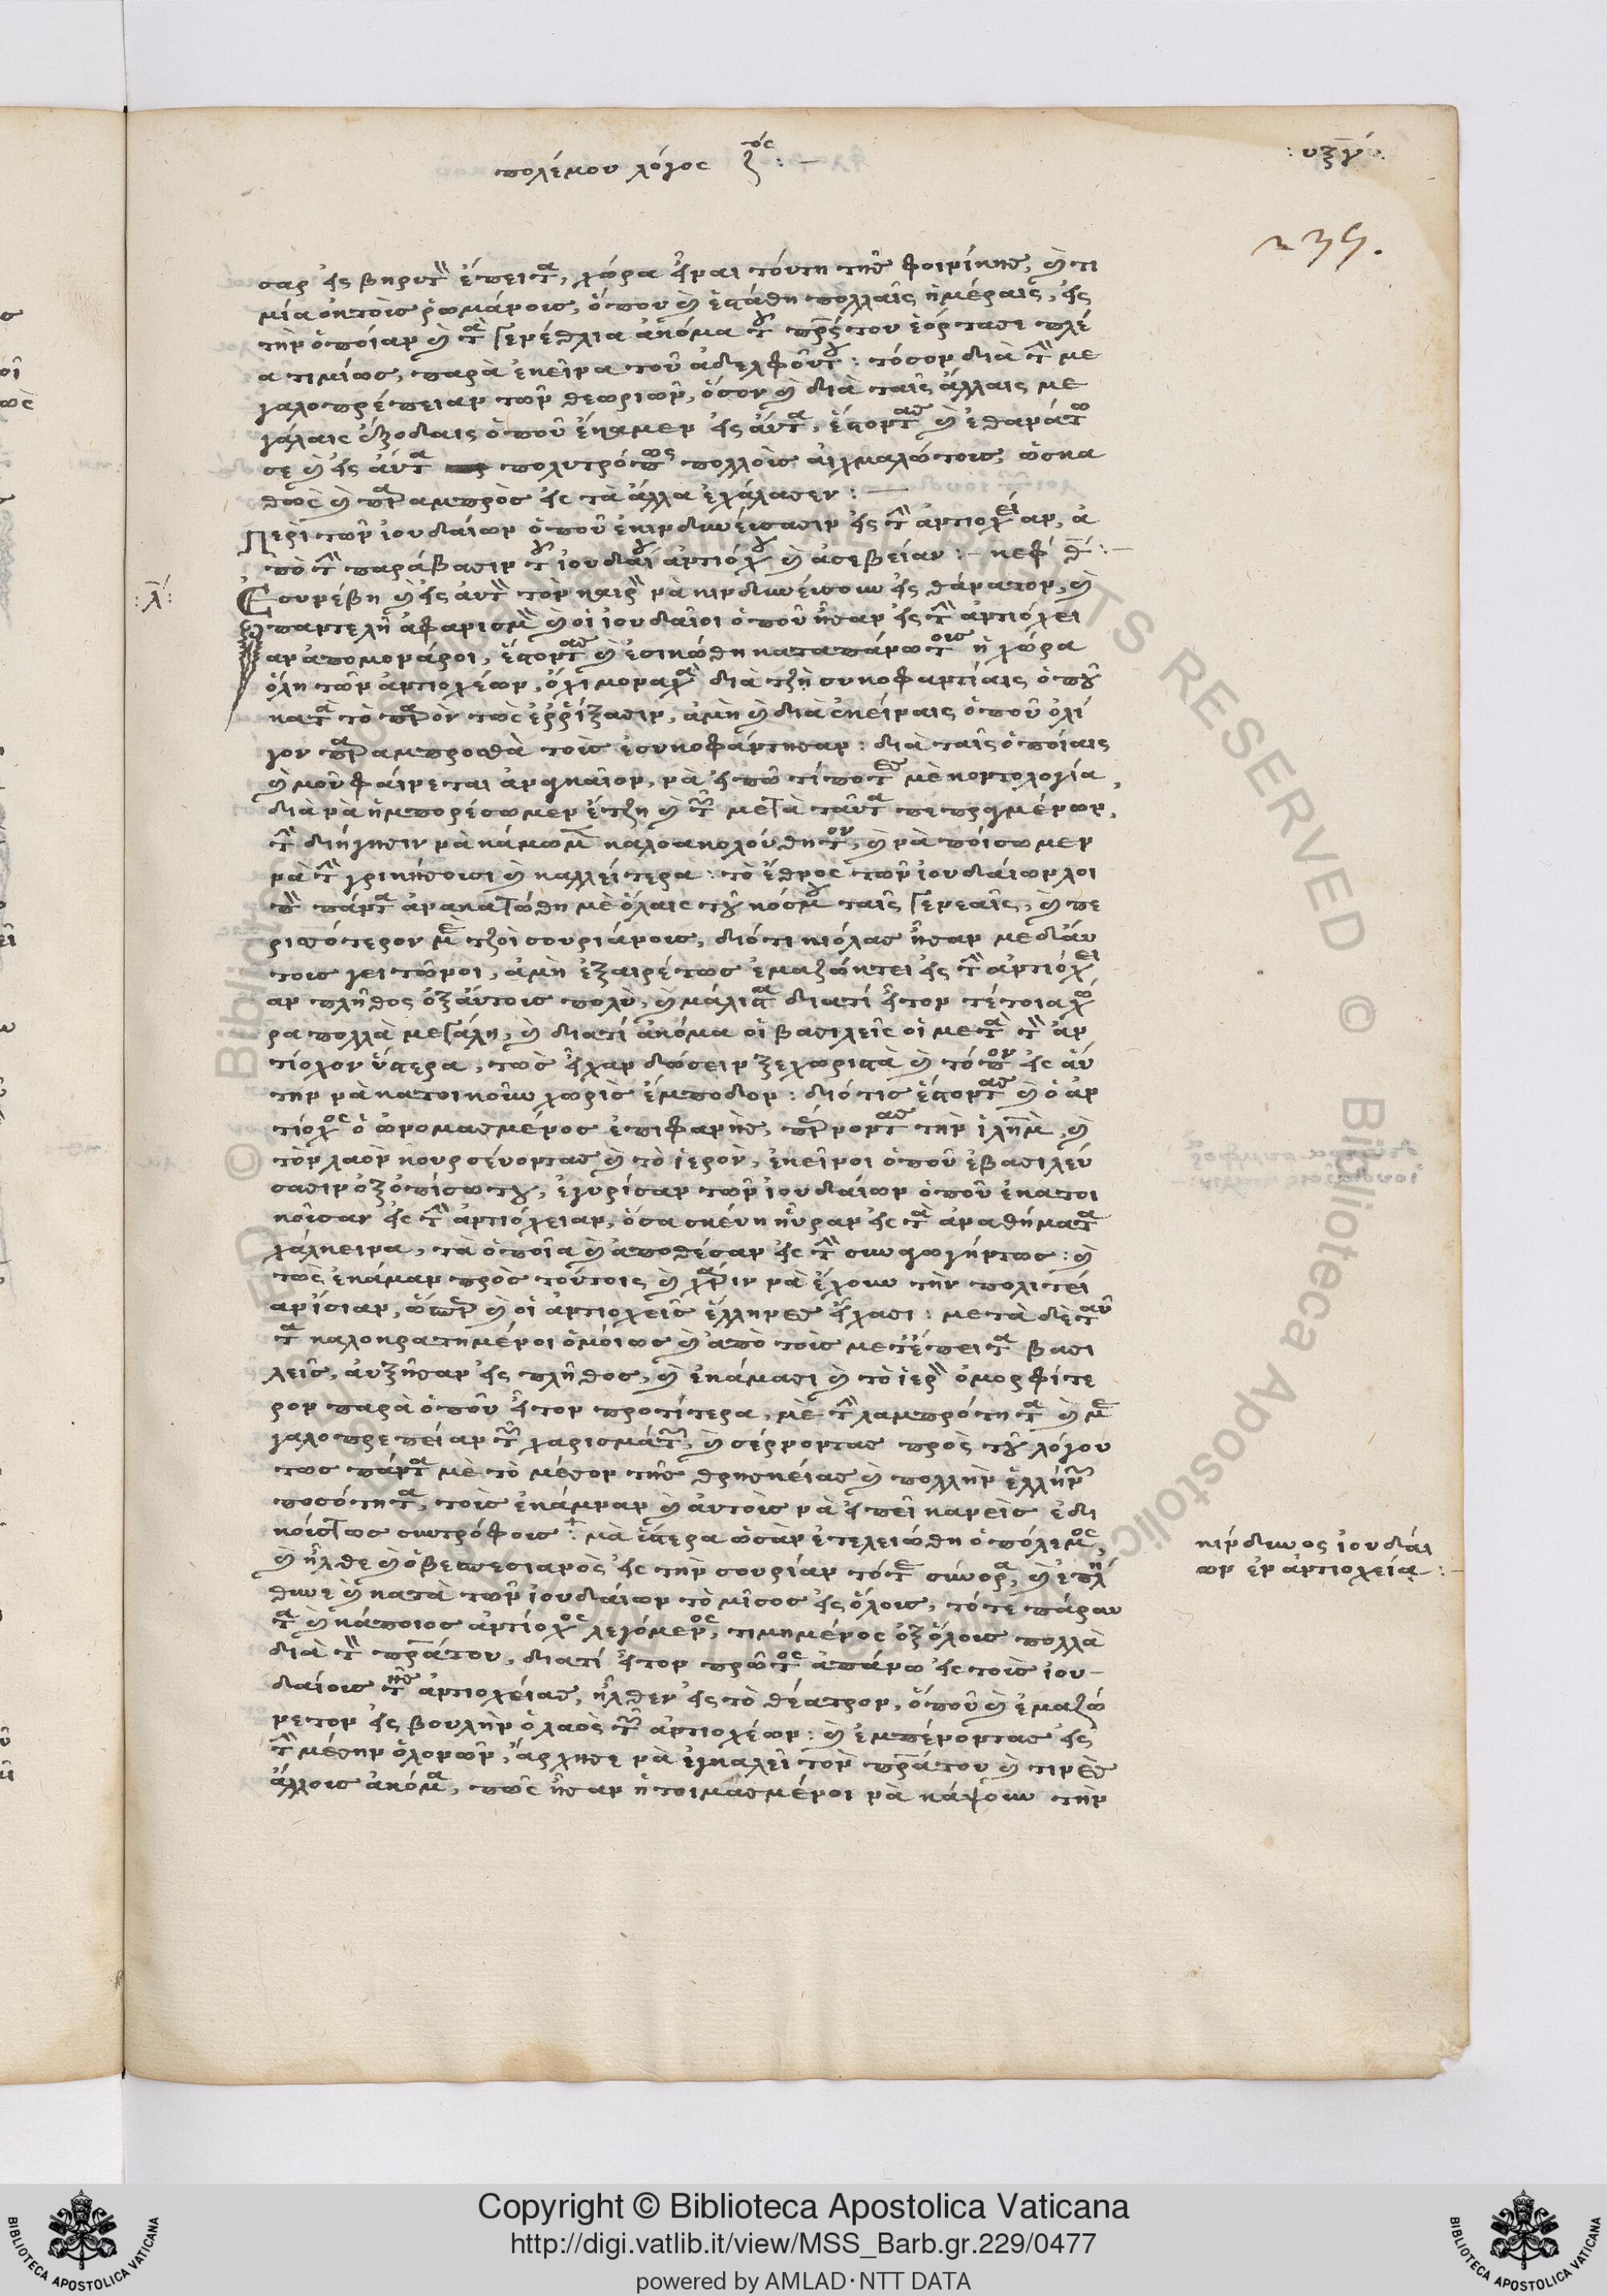 πολέμου λόγος ζ^ος :—
: υξγ :
235.
σαρ εἰς βηρυτὸν ἔπειτα, χώρα εἶναι τούτη τῆς φοινίκης, καὶ τι
μία ἐκ τοὺς ρωμάνους, ὅπου καὶ ἐστάθη πολλαῖς ἡμέραις, εἰς
τὴν ὁποίαν καὶ τὰ γενέθλια ἀκόμα τοῦ πατρός του ἑόρτασε πλέ
α τιμίως, παρὰ ἐκεῖνα τοῦ ἀδελφοῦ του : τόσον διὰ τὴν με
γαλοπρέπειαν τῶν θεωριῶν, ὅσον καὶ διὰ ταῖς ἄλλαις με
γάλαις ἐξοδαις ὁποῦ ἔκαμεν εἰς αὐτὰ, ἔστοντας καὶ ἐθανάτω
σε καὶ εἰς αὐτὰ πολυτρόπως πολλοὺς αἰχμαλώτους, ὡς κα
θὼς καὶ παραμπρὸς εἰς τὰ ἄλλα ἐχάλασεν :—
Περὶ τῶν ἰουδαίων ὁποῦ ἐκινδυνεύσασιν εἰς τὴν ἀντιοχείαν, ἀ
πὸ τὴν παράβασιν τοῦ ἰουδαίου ἀντιόχου καὶ ἀσεβείαν :— κεφ θ :—
: λ :
Εσυνέβη καὶ εἰς αὐτὸν τὸν καιρὸν νὰ κινδυνεύσουν εἰς θάνατον, καὶ
παντελῆ ἀφανισμὸν καὶ οἱ ἰουδαῖοι ὁποῦ ἦσαν εἰς τὴν ἀντιόχει
αν ἀπομονάροι, ἔστοντας καὶ ἐσικώθη καταπάνω τοὺς ἡ χώρα
ὅλη τῶν ἀντιοχέων, ὄχι μοναχὰ διὰ τζὴ συκοφαντίαις ὁποῦ
κατὰ τὸ παρὸν τοὺς ἐῤῥίξασιν, ἀμὴ καὶ διὰ ἐκείναις ὁποῦ ὀλί
γον παραμπροσθὰ τοὺς ἐσυκοφάντησαν : διὰ ταῖς ὁποίαις
καὶ μοῦ φαίνεται ἀναγκαῖον, νὰ εἰπῶ τίποτες μὲ κοντολογία,
διὰ νὰ ἡμπορέσωμεν ἔτζη καὶ τῶν μετὰ ταῦτα πεπραγμένων,
τὴν διήγησιν νὰ κάμωμεν καλοακολούθητον, καὶ νὰ ποίσωμεν
νὰ τὴν γρικήσουσι καὶ καλλίτερα : τὸ ἔθνος τῶν ἰουδαίων λοι
πὸν πάντα ἀνακατώθη μὲ ὅλαις τοῦ κόσμου ταῖς γενεαῖς, καὶ πε
ρισσότερον μὲ τζοὶ σουριάνους, διότι κιόλας ἦσαν με δαύ
τους γειτῶνοι, ἀμὴ ἐξαιρέτως ἐμαζώκτει εἰς τὴν ἀντιόχει
αν πλῆθος ἐξ αὐτοὺς πολὺ, καὶ μάλιστα διατί ἦτον τέτοια χώ
ρα πολλὰ μεγάλη, καὶ διατί ἀκόμα οἱ βασιλεῖς οἱ μετὰ τὸν ἀν
τίοχον ὕστερα, τοὺς εἶχαν δώσειν ξεχωριστὰ καὶ τόπον εἰς αὐ
τὴν νὰ κατοικοῦν χωρὶς ἔμποδον : διότις ἔστοντας καὶ ὁ ἀν
τίοχος ὁ ὠνομασμένος ἐπιφανὴς, παίρνοντας τὴν ἱλημ, καὶ
τὸν λαὸν κουρσεύοντας καὶ τὸ ἱερὸν, ἐκεῖνοι ὁποῦ ἐβασιλεύ
σασιν ἐξοπίσω του, ἐγυρίσαν τῶν ἰουδαίων ὁποῦ ἐκατοι
κοῖσαν εἰς τὴν ἀντιόχειαν, ὅσα σκεύη ηὗραν εἰς τὰ ἀναθήματα
χάλκεινα, τὰ ὁποῖα καὶ ἀποθέσαν εἰς τὴν συναγωγήν τως : καὶ
τοὺς ἐκάμαν πρὸς τούτοις καὶ χάριν νὰ ἔχουν τὴν πολιτεί
αν ἴσιαν, ὥσπερ καὶ οἱ ἀντιοχεῖς ἕλληνες εἴχασι : μετὰ δὲ ταῦ
τα καλοκρατημένοι ὁμοίως καὶ ἀπὸ τοὺς μετέπειτα βασι
λεῖς, αὐξῆσαν εἰς πλῆθος, καὶ ἐκάμασι καὶ τὸ ἱερὸν ὀμορφίτε
ρον παρὰ ὁποῦ ἦτον προτίτερα, μὲ τὴν λαμπρότητα καὶ με
γαλοπρεπείαν τῶν χαρισμάτων, καὶ σέρνοντας πρὸς τοῦ λόγου
τως πάντα μὲ τὸ μέσον τῆς θρησκείας καὶ πολλὴν ἑλλήνων
ποσότητα, τοὺς ἐκάμναν καὶ αὐτοὺς νὰ εἰπεῖ κανεὶς ἐδι
κούς τως συντρόφους : μὰ ὕστερα ὡσὰν ἐτελειώθη ὁ πόλεμος,
καὶ ἦλθε καὶ ὁ βεσπεσιανὸς εἰς τὴν σουρίαν τότε σύνορα, καὶ ἐπλή
θυνε καὶ κατὰ τῶν ἰουδαίων τὸ μῖσος εἰς ὅλους, τότε πάραυ
τα καὶ κάποιος ἀντίοχος λεγόμενος, τιμημένος ἐξ ὅλους πολλὰ
διὰ τὸν πατέρα του, διατί ἦτον πρῶτος ἀπάνω εἰς τοὺς ἰου-
δαίους τῆς ἀντιοχείας, ἦλθεν εἰς τὸ θέατρον, ὁποῦ καὶ ἐμαζώ
νετον εἰς βουλὴν ὁ λαὸς τῶν ἀντιοχέων : καὶ ἐμπένοντας εἰς
τὴν μέσην ὁλονῶν, ἄρχησε νὰ ἐγκαλεῖ τὸν πατέρα του καὶ τινὲς
ἄλλους ἀκόμα, πῶς ἦσαν ἡτοιμασμένοι νὰ κάψουν τὴν
κίνδυνος ἰουδαί
ων ἐν ἀντιοχείᾳ :—
Copyright © Biblioteca Apostolica Vaticana
http://digi.vatlib.it/view/MSS_Barb.gr.229/0477
powered by AMLAD·NTT DATA